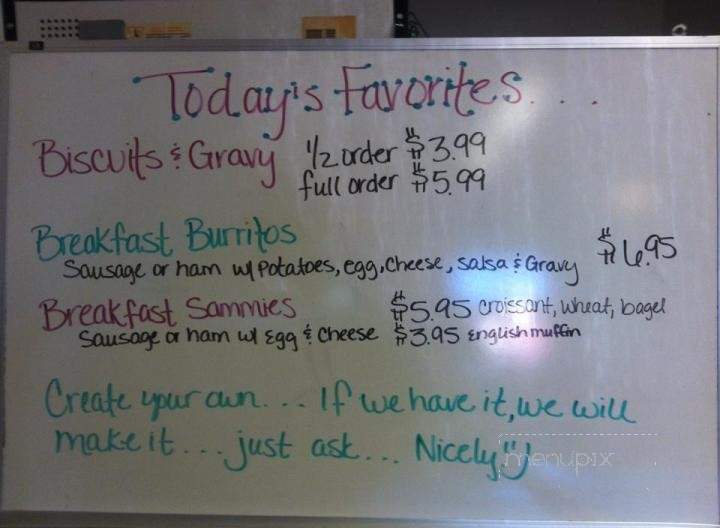 Today's Favorites...
Biscuits & Gravy 1/2 order $3.99
full order $5.99
Breakfast Burritos $6.95
Sausage or ham w/ Potatoes, egg, cheese, salsa & Gravy
Breakfast Sammies $5.95 croissant, wheat, bagel
Sausage or ham w/ Egg & Cheese $3.95 English muffin
Create your own... If we have it, we will
make it... just ask... Nicely ü
menupix